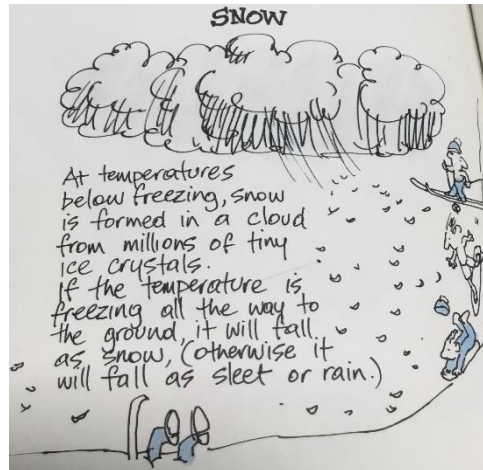 SNOW
At temperatures
below freezing, snow
is formed in a cloud
from millions of tiny
ice crystals.
If the temperature is
freezing all the way to
the ground, it will fall
as snow, (otherwise it
will fall as sleet or rain.)